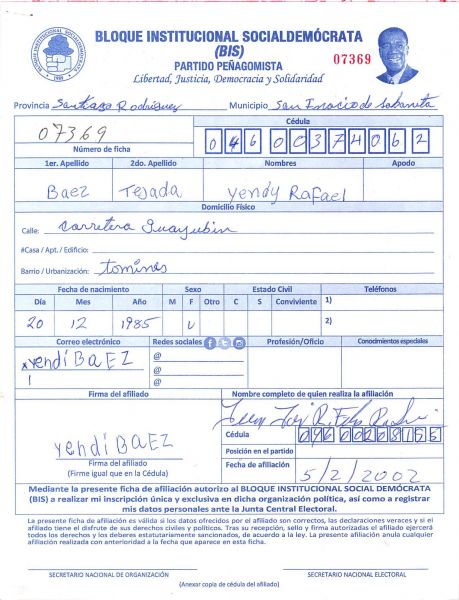 BLOQUE INSTITUCIONAL SOCIALDEMÓCRATA
(BIS)
PARTIDO PEÑAGOMISTA
Libertad, Justicia, Democracia y Solidaridad
07369
Provincia Santiago Rodriguez Municipio San Inacio de Sabaneta
07369
Número de ficha
Cédula
046 0037406 2
1er. Apellido 2do. Apellido Nombres Apodo
Baez Tejada Yendy Rafael
Domicilio Físico
Calle: Carretera Guayubin
#Casa / Apt. / Edificio:
Barrio / Urbanización: tomines
Fecha de nacimiento Sexo Estado Civil Teléfonos
Día Mes Año M F Otro C S Conviviente 1)
20 12 1985 2)
Correo electrónico Redes sociales Profesión/Oficio Conocimientos especiales
yendi BAEZ
@
@
@
Firma del afiliado Nombre completo de quien realiza la afiliación
yendi BAEZ
Firma del afiliado
(Firme igual que en la Cédula)
Cédula
Posición en el partido
Fecha de afiliación 5/2/2002
Mediante la presente ficha de afiliación autorizo al BLOQUE INSTITUCIONAL SOCIAL DEMÓCRATA
(BIS) a realizar mi inscripción única y exclusiva en dicha organización política, así como a registrar
mis datos personales ante la Junta Central Electoral.
La presente ficha de afiliación es válida si los datos ofrecidos por el afiliado son correctos, las declaraciones veraces y si el
afiliado tiene el disfrute de sus derechos civiles y políticos. Tras su recepción, sello y firma autorizadas el afiliado ejercerá
todos los derechos y los deberes estatutariamente sancionados, de acuerdo a la ley. La presente afiliación anula cualquier
afiliación realizada con anterioridad a la fecha que aparece en esta ficha.
SECRETARIO NACIONAL DE ORGANIZACIÓN SECRETARIO NACIONAL ELECTORAL
(Anexar copia de cédula del afiliado)